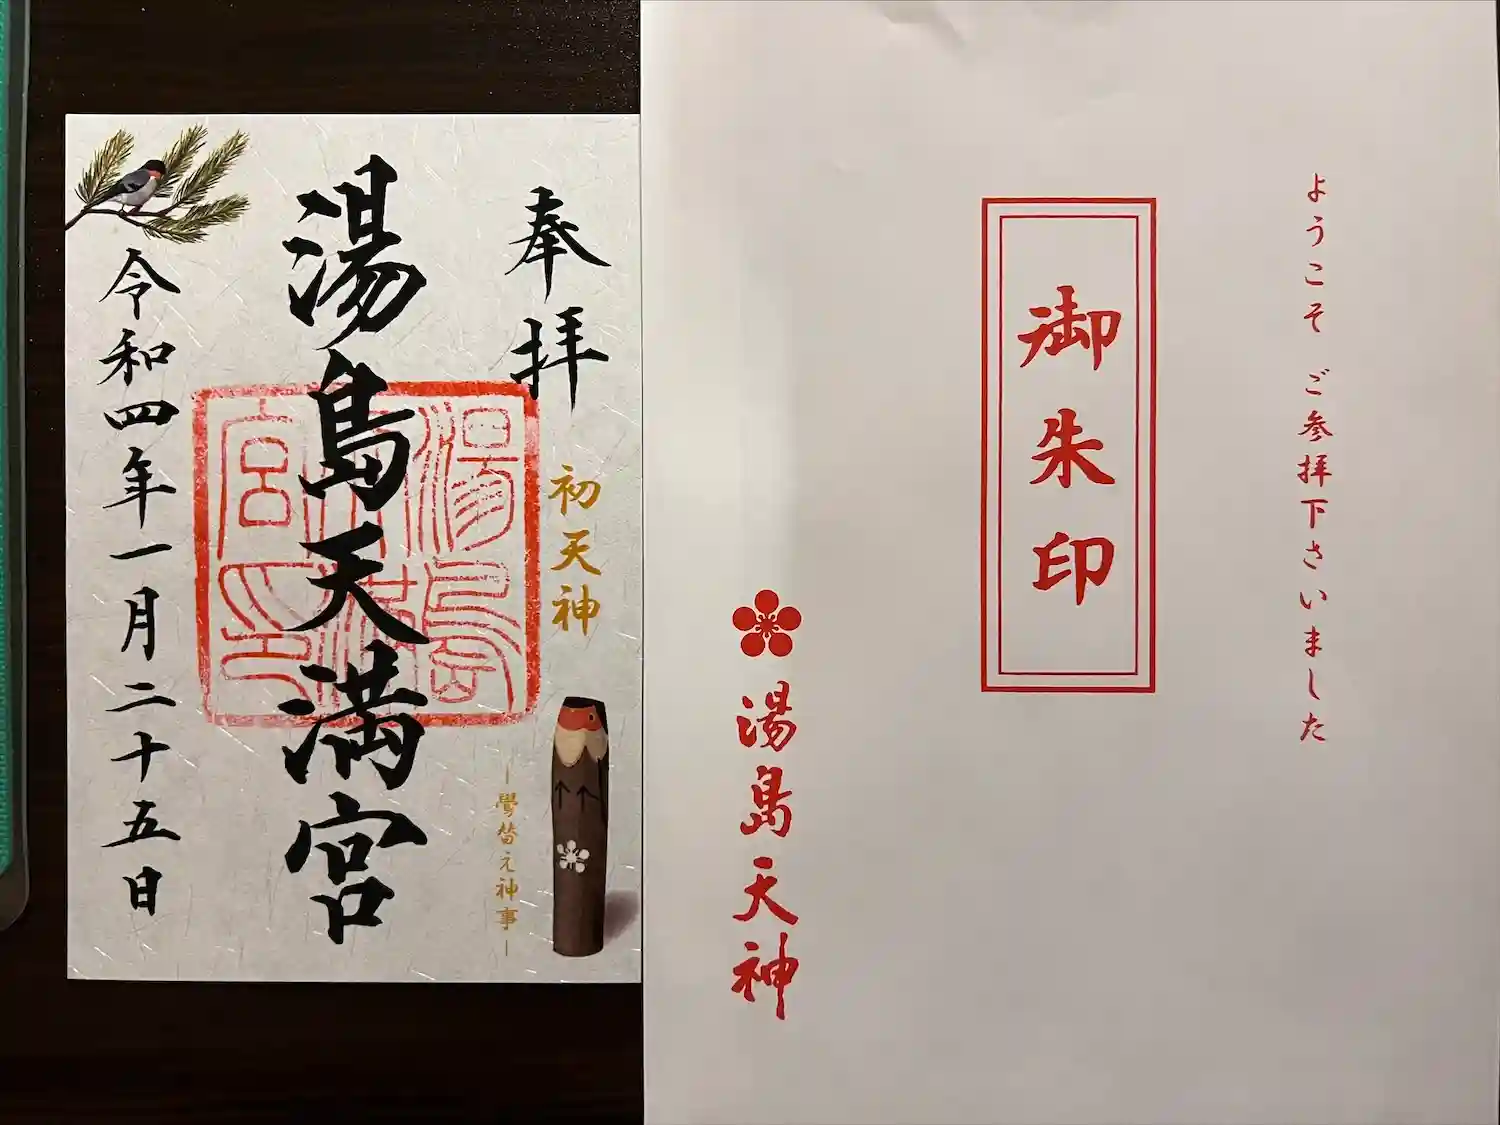 奉拝
初天神
－鷽替え神事－
湯島天満宮
湯島天満宮印
令和四年一月二十五日
ようこそ ご参拝下さいました
御朱印
湯島天神